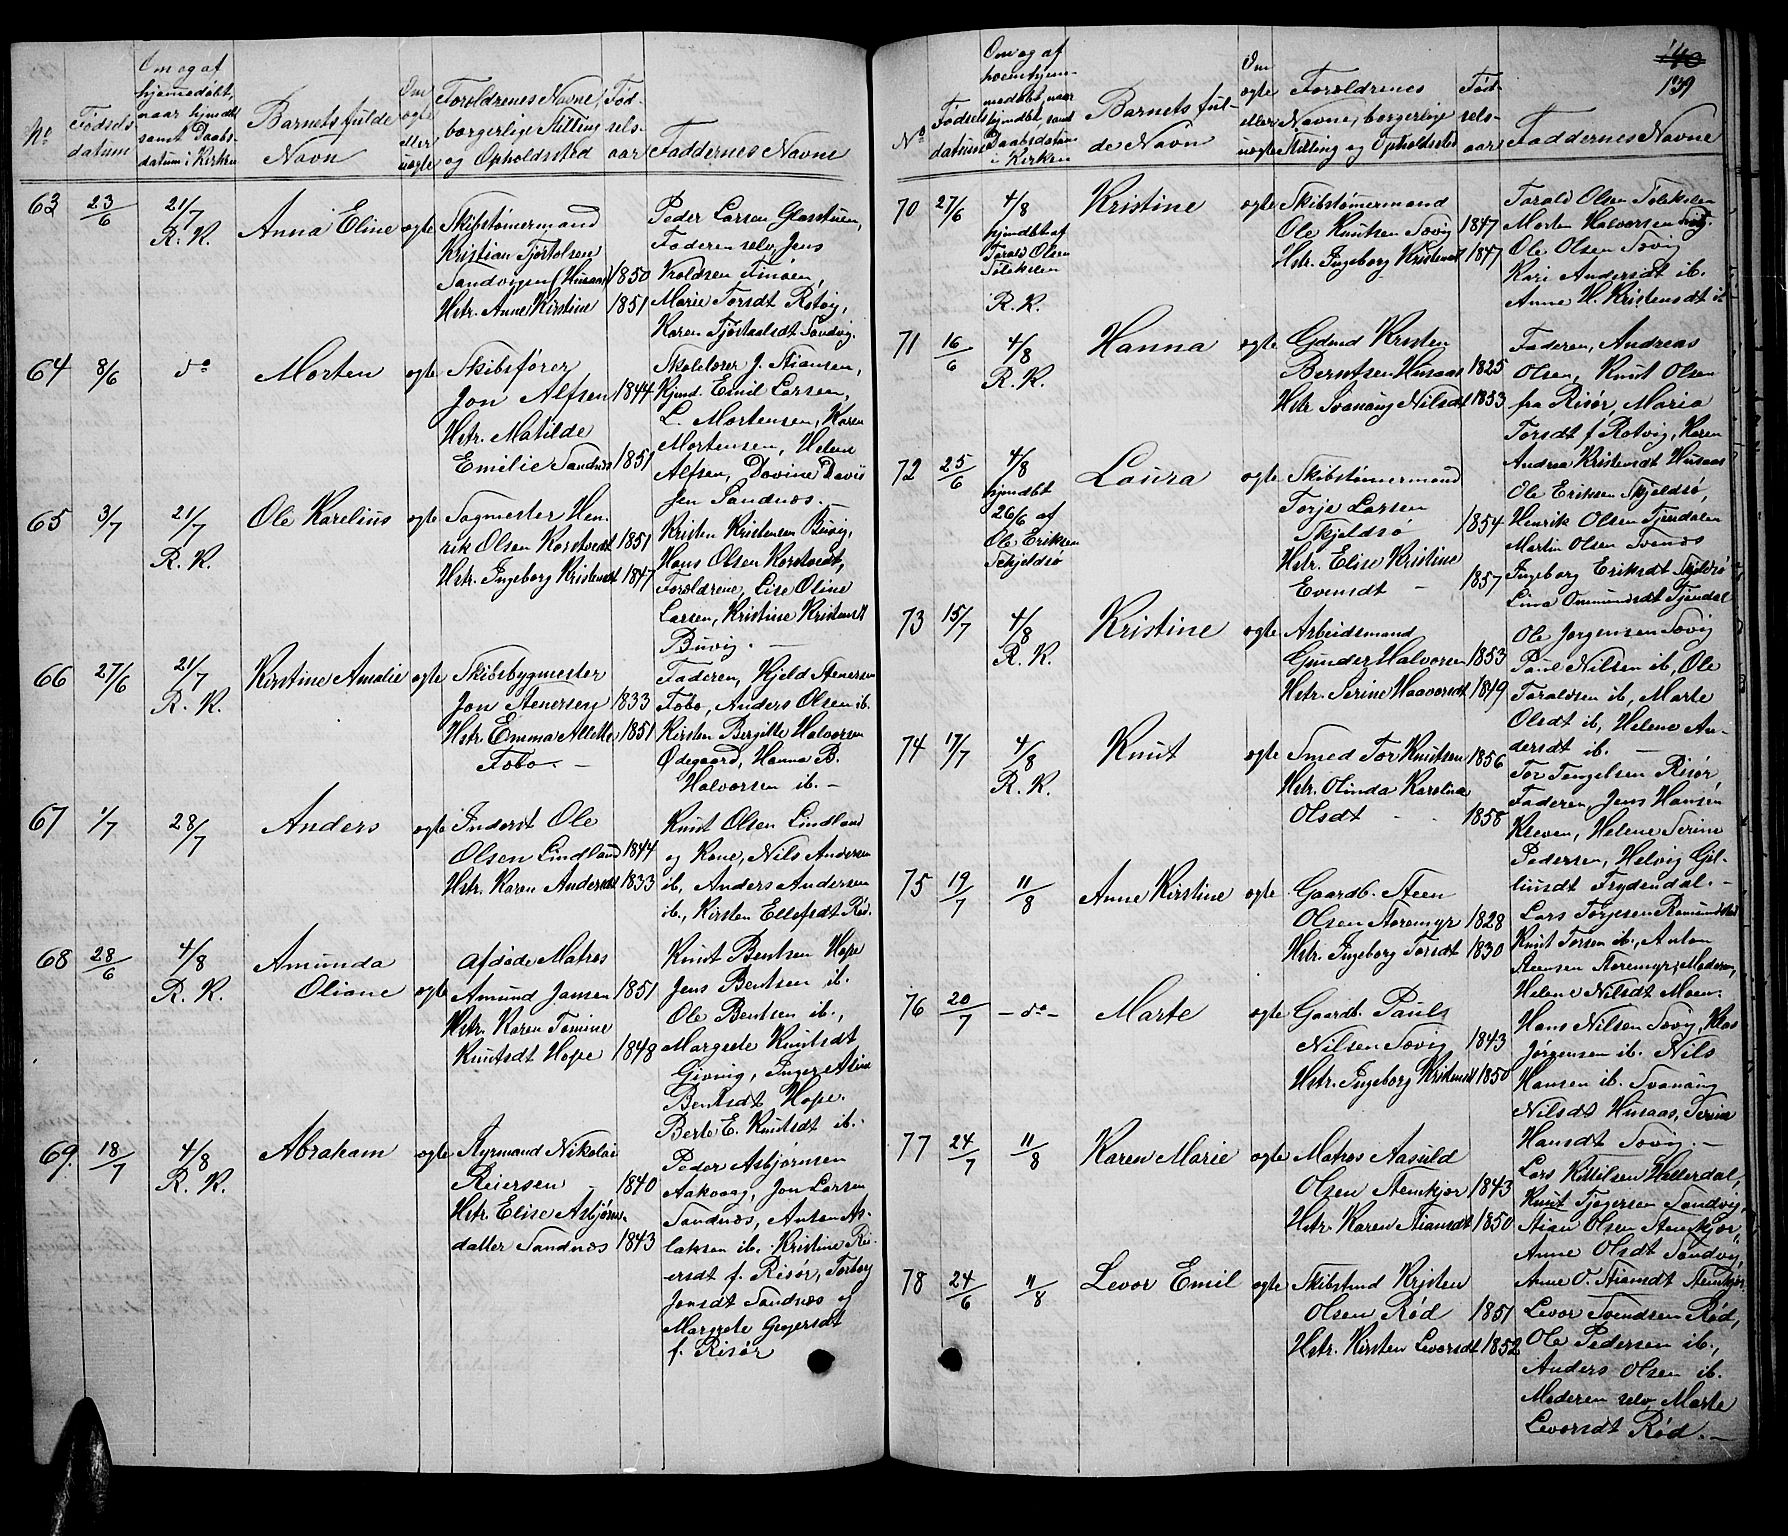 No
Fødsels
datum
Om og af
hjemmedøbt,
naar hjemdbt
samt Daabs
datum i Kirken
Barnets fulde
Navn
Om
ægte
eller
uægte
Forældrenes Navne,
borgerlige Stilling
og Opholdssted
Fød-
sels-
aar
Faddernes Navne
63
23/6
21/7
R. K.
Anna Eline
ægte
Skibstømermand
Kristian
Sandvigen (Husaas)
1850
Hstr. Anne Kirstine
1851
Peder Larsen
Faderen selv, Jens
Marie Torsdt Rotvig,
Karen Sandvig.
64
8/6
do
Morten
ægte
Skibsfører
Jon Alfsen
1844
Hstr. Matilde
Emilie Sandnæs
1851
Skolelærer J. Stiansen,
Emil Larsen,
L. Mortensen, Karen
Mortensen, Helene
Alfsen, Davine Davi
sen Sandnæs.
65
3/7
21/7
R. K.
Ole Karelius
ægte
Sagmester Hen-
rik Olsen Korstvedt
1851
Hstr. Ingeborg Kristensdt
1847
Kristen Kristensen Buvig,
Hans Olsen Korstvedt,
Forældrene, Lise Oline
Larsen, Kristine Kristensdt
Buvig. —
66
27/6
21/7
R. K.
Kirstine Amalie
ægte
Skibsbygmester
Jon Stenersen
1833
Hstr. Emma Alette
1851
Fobo —
Faderen, Kjeld Stenersen
Fobo, Anders Olsen ib.
Kirsten Bergitte Halvorsen
Ødegaard, Hanna B.
Halvorsen ib. —
67
1/7
28/7
Anders
ægte
Inderst Ole
Olsen Lindland
1844
Hstr. Karen Andersdt
1833
Knut Olsen Lindland
og Kone, Nils Andersen
ib., Anders Andersen
ib., Kirsten Ellefsdt Rød.
68
28/6
4/8
R. K.
Amunda
Oliane
ægte
Afdøde Matros
Amund Jansen
1851
Hstr. Karen Tomine
Knutsdt Hope
1848
Knut Bentsen Hope
Jens Bentsen ib.
Ole Bentsen ib.,
Margrete Knutsdt
Gjeving, Inger Aline
Bentsdt Hope.
Berte E. Knutsdt ib.
69.
18/7
4/8
R. K.
Abraham
ægte
Styrmand Nikolai
Reiersen
1840
Hstr. Elise Asbjørns-
datter Sandnæs
1843
Peder Asbjørnsen
Aakvaag, Jon Larsen
Sandnæs, Anten As-
laksen ib. Kristine Rei-
ersdt f. Risør, Torborg
Jonsdt Sandnæs og
Margrete Gregersdt
f. Risør
139
No
Fødsels
datum
Om og af
hvem hjem-
medøbt, naar
hjemdbt, samt
Daabsdatum
i Kirken
Barnets ful-
de Navn
Om
ægte
eller
uægte
Forældrenes
Navne, borgerlige
Stilling og Opholdsted
Fød-
sels-
aar
Faddernes Navne
70
27/6
4/8
hjemdbt af
Tarald Olsen
R. K.
Kristine
ægte
Skibstømermand
Ole Knutsen Søvig
1847
Hstr. Ingeborg Kristensdt
1847
Tarald Olsen
Morten Halvorsen
Ole Olsen Søvig
Kari Andersdt ib.
Anne H. Kristensdt ib
71
16/6
4/8
R. K.
Hanna
ægte
Kristen
Berntsen Husaas
1825
Hstr. Svanaug Nilsdt
1833
Faderen, Andreas
Olsen, Knut Olsen
fra Risør, Maria
Torsdt f. Rotvig, Karen
Andrea Kristensdt Husaas
72
25/6
4/8
hjemdbt
26/6 af
Ole Eriksen
Skjeldsø
Laura
ægte
Skibstømermand
Torje Larsen
Skjeldsø
1854
Hstr. Elise Kristine
Evensdt —
1857
Ole Eriksen Skjeldsø,
Henrik Olsen Fjendalen
Martin Olsen
Ingeborg Eriksdt Skjeldsø
Lina Ommundsdt Fjendal
73
15/7
4/8
R. K.
Kristine
ægte
Arbeidsmand
Gunder Halvorsen
1853
Hstr. Serine Haavorsdt
1849
Ole Jørgensen Søvig
Paul Nilsen ib, Ole
Taraldsen ib, Marte
Olsdt ib, Helene An-
dersdt ib. —
74
17/7
4/8
R. K.
Knut
ægte
Smed Tor Knutsen
1856
Hstr. Olinda Karolina
Olsdt - -
1858
Tor Tengelsen Risør
Faderen, Jens Hansen
Kleven, Helene Serine
Pedersen, Helvig Gil-
lusdt Frydendal. —
75
19/7
11/8
Anne Kirstine
ægte
Gaardb. Steen
Olsen Støremyr
1828
Hstr. Ingeborg Torsdt
1830
Lars Torjesen
Knut Torsen ib., Anton
Steensen Støremyr, Moderen,
Helene Nilsdt Moen.
76
20/7
— do —
Marte
ægte
Gaardb. Paul
Nilsen Søvig
1843
Hstr. Ingeborg Kristensdt
1850
Hans Nilsen Søvig, Klas
Jørgensen ib. Nils
Hansen ib. Svanaug
Nilsdt Husaas, Serine
Hansdt Søvig. —
77
24/7
11/8
Karen Marie
ægte
Matros Aasuld
Olsen Stemkjær
1843
Hstr. Karen Stiansdt
1850
Lars Kittilsen Hellerdal,
Knut Sandvig,
Stian Olsen Stemkjær,
Anne Olsdt Sandvig,
Anne O. Stiansdt Stemkjær
78
24/6
11/8
Levor Emil
ægte
Skibstmd Kristen
Olsen Rød
1851
Hstr. Kirsten Levorsdt
1852
Levor Svendsen Rød,
Ole Pedersen ib.,
Anders Olsen ib.
Moderen selv, Marte
Levorsdt Rød. —